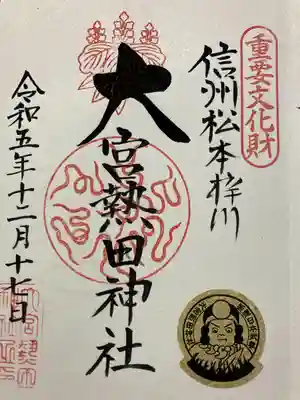 重要文化財
信州松本梓川
大宮熱田神社
令和五年十二月十七日